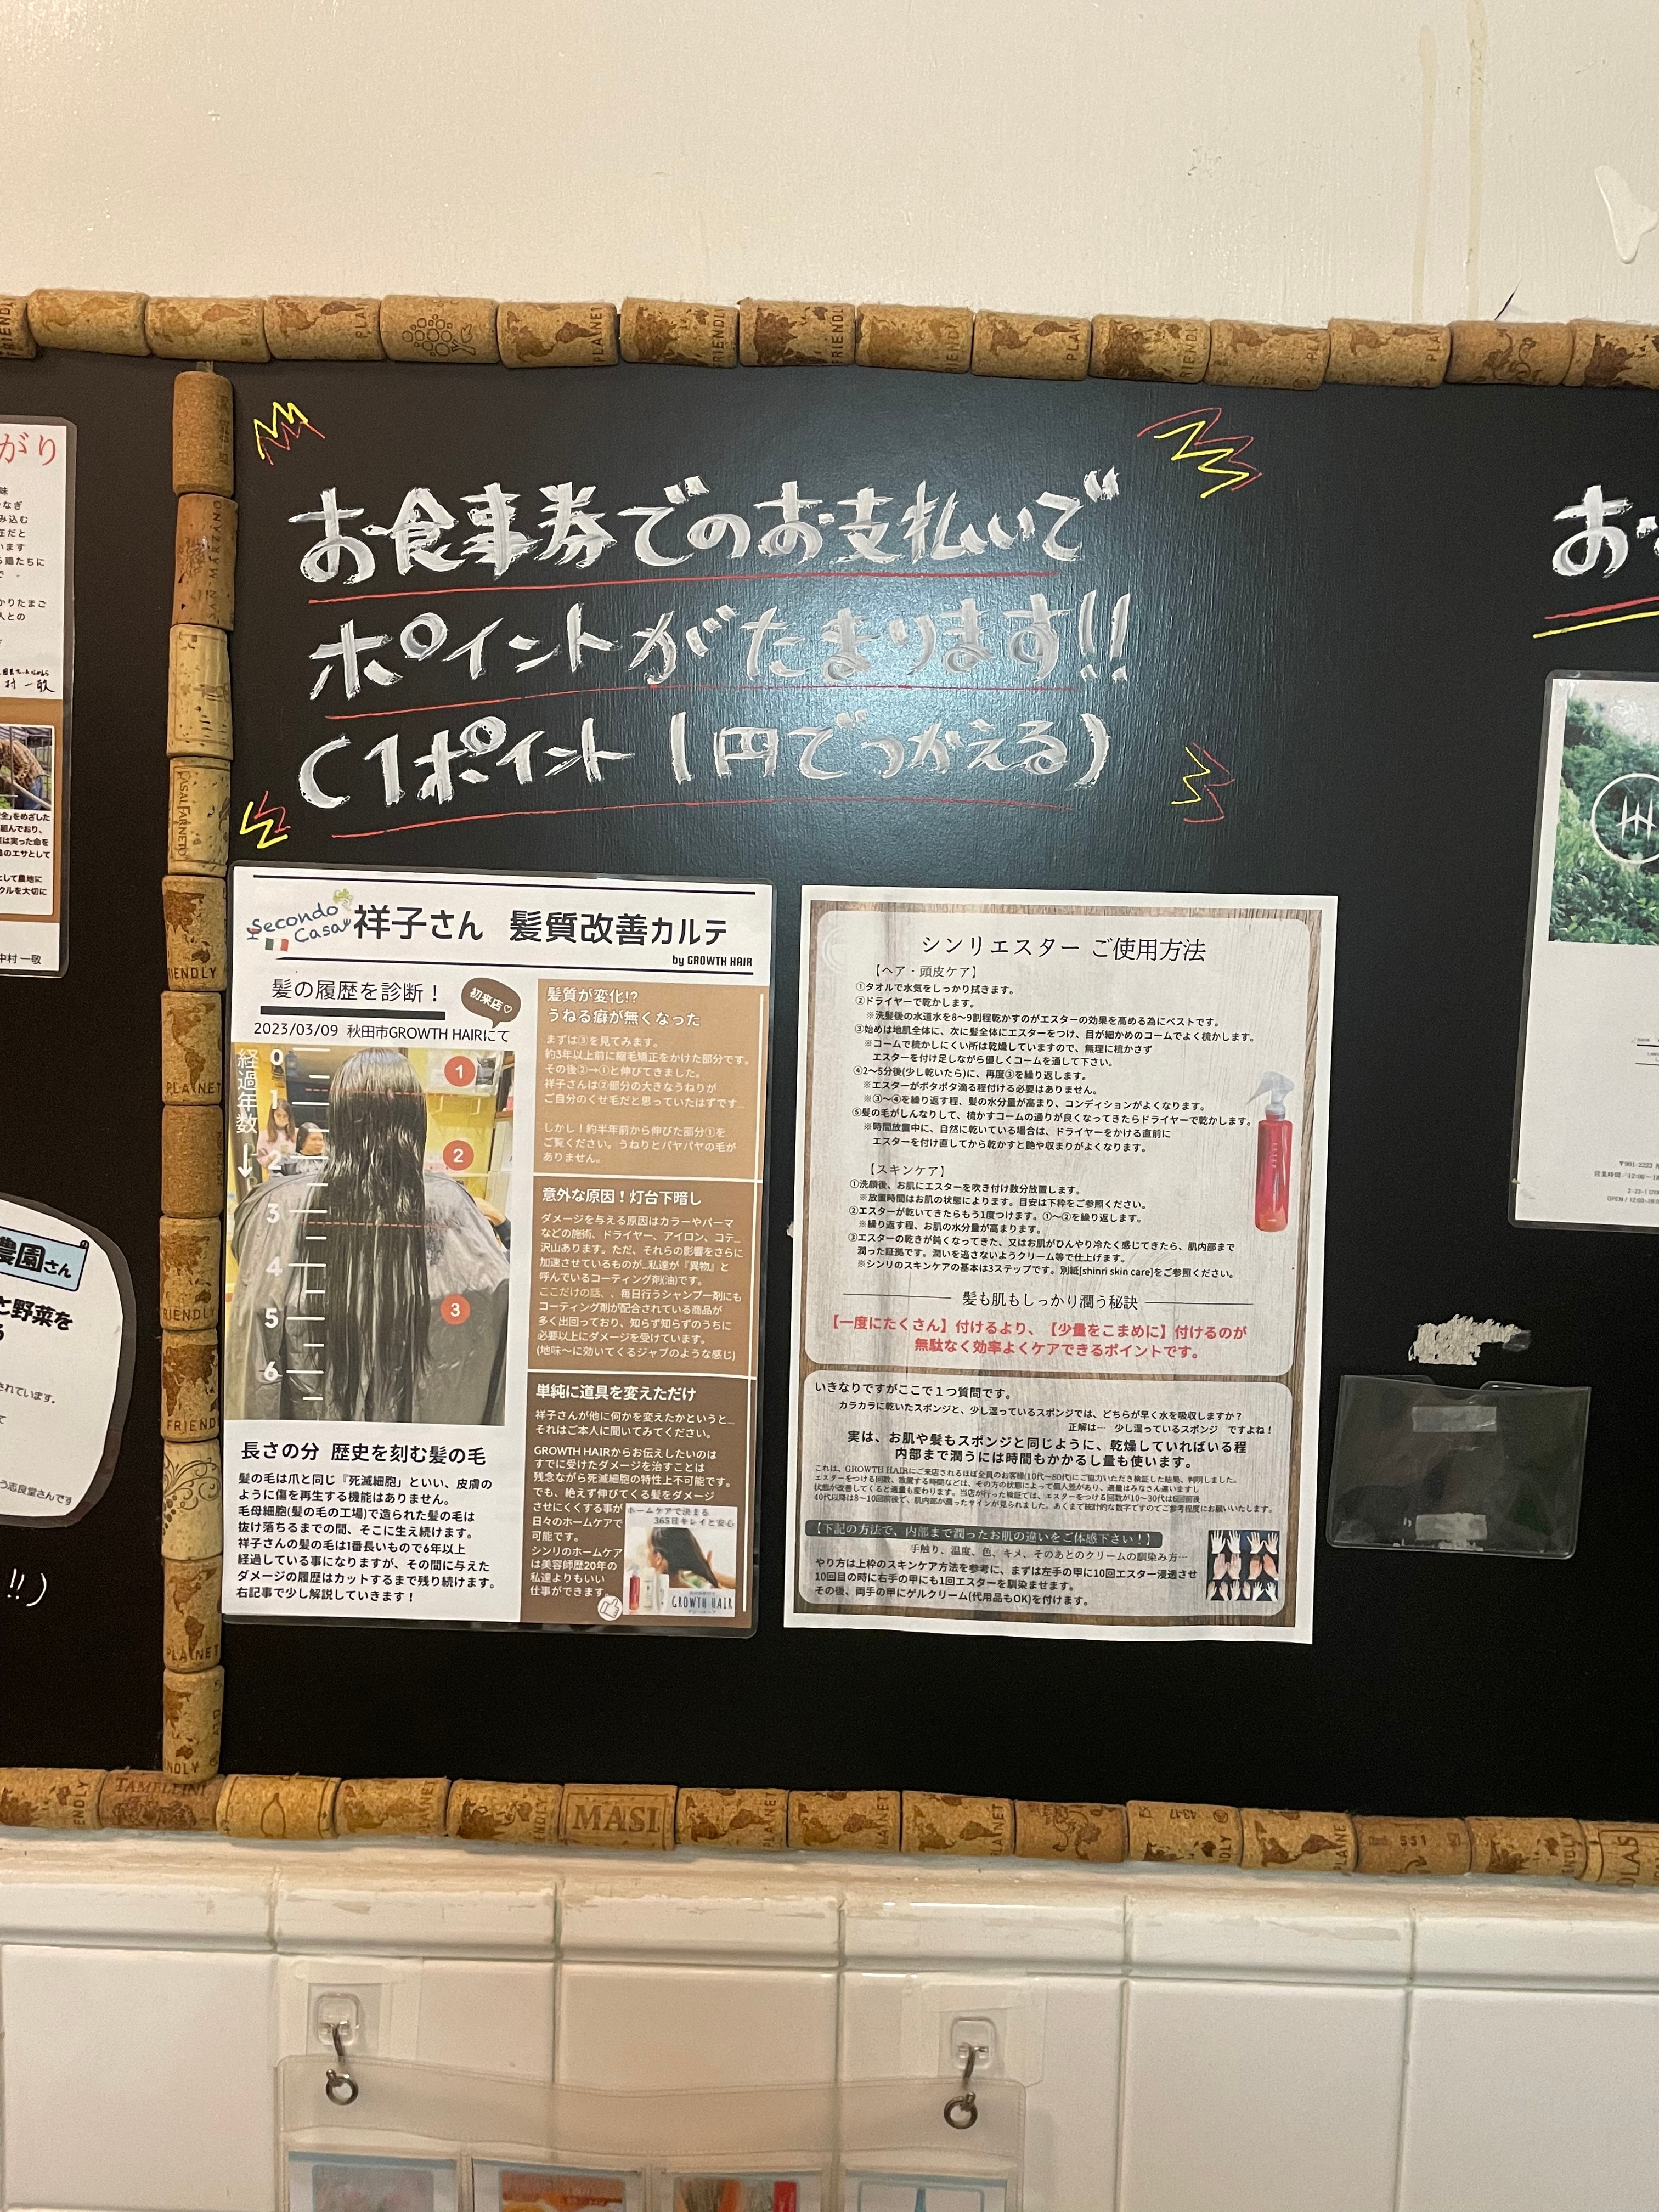 お食事券でのお支払いで
ポイントがたまります!!
(1ポイント1円でつかえる)
がり
味
なぎ
み込む
在だと
います
る鶏たちに
で
かりたまご
人との
村 一敬
全」をめざした
組んでおり、
は実った命を
のエサとして
として農地に
クルを大切に
中村 一敬
農園さん
と野菜を
る
されています。
て
う志良堂さんです
!!)
Secondo Casa
祥子さん 髪質改善カルテ
by GROWTH HAIR
髪の履歴を診断！
初来店♡
2023/03/09 秋田市GROWTH HAIRにて
経過年数↓
0
1
2
3
4
5
6
1
2
3
長さの分 歴史を刻む髪の毛
髪の毛は爪と同じ『死滅細胞』といい、皮膚の
ように傷を再生する機能はありません。
毛母細胞(髪の毛の工場)で造られた髪の毛は
抜け落ちるまでの間、そこに生え続けます。
祥子さんの髪の毛は1番長いもので6年以上
経過している事になりますが、その間に与えた
ダメージの履歴はカットするまで残り続けます。
右記事で少し解説していきます！
髪質が変化!?
うねる癖が無くなった
まずは③を見てみます。
約3年以上前に縮毛矯正をかけた部分です。
その後②→①と伸びてきました。
祥子さんは②部分の大きなうねりが
ご自分のくせ毛だと思っていたはずです…
しかし！約半年前から伸びた部分①を
ご覧ください。うねりとパヤパヤの毛が
ありません。
意外な原因！灯台下暗し
ダメージを与える原因はカラーやパーマ
などの施術、ドライヤー、アイロン、コテ…
沢山あります。ただ、それらの影響をさらに
加速させているものが…私達が『異物』と
呼んでいるコーティング剤(油)です。
ここだけの話、、毎日行うシャンプー剤にも
コーティング剤が配合されている商品が
多く出回っており、知らず知らずのうちに
必要以上にダメージを受けています。
(地味〜に効いてくるジャブのような感じ)
単純に道具を変えただけ
祥子さんが他に何かを変えたかというと…
それはご本人に聞いてみてください。
GROWTH HAIRからお伝えしたいのは
すでに受けたダメージを治すことは
残念ながら死滅細胞の特性上不可能です。
でも、絶えず伸びてくる髪をダメージ
させにくくする事が
日々のホームケアで
可能です。
シンリのホームケア
は美容師歴20年の
私達よりもいい
仕事ができます。
ホームケアで決まる
365日キレイと安心
GROWTH HAIR
シンリエスター ご使用方法
【ヘア・頭皮ケア】
①タオルで水気をしっかり拭きます。
②ドライヤーで乾かします。
※洗髪後の水道水を8〜9割程乾かすのがエスターの効果を高める為にベストです。
③始めは地肌全体に、次に髪全体にエスターをつけ、目が細かめのコームでよく梳かします。
※コームで梳かしにくい所は乾燥していますので、無理に梳かさず
エスターを付け足しながら優しくコームを通して下さい。
④2〜5分後(少し乾いたら)に、再度③を繰り返します。
※エスターがボタボタ滴る程付ける必要はありません。
※③〜④を繰り返す程、髪の水分量が高まり、コンディションがよくなります。
⑤髪の毛がしんなりして、梳かすコームの通りが良くなってきたらドライヤーで乾かします。
※時間放置中に、自然に乾いている場合は、ドライヤーをかける直前に
エスターを付け直してから乾かすと艶や収まりがよくなります。
【スキンケア】
①洗顔後、お肌にエスターを吹き付け数分放置します。
※放置時間はお肌の状態によります。目安は下枠をご参照ください。
②エスターが乾いてきたらもう1度つけます。①〜②を繰り返します。
※繰り返す程、お肌の水分量が高まります。
③エスターの乾きが鈍くなってきた、又はお肌がひんやり冷たく感じてきたら、肌内部まで
潤った証拠です。潤いを逃さないようクリーム等で仕上げます。
※シンリのスキンケアの基本は3ステップです。別紙[shinri skin care]をご参照ください。
髪も肌もしっかり潤う秘訣
【一度にたくさん】付けるより、【少量をこまめに】付けるのが
無駄なく効率よくケアできるポイントです。
いきなりですがここで１つ質問です。
カラカラに乾いたスポンジと、少し湿っているスポンジでは、どちらが早く水を吸収しますか？
正解は… 少し湿っているスポンジ ですよね！
実は、お肌や髪もスポンジと同じように、乾燥していればいる程
内部まで潤うには時間もかかるし量も使います。
これは、GROWTH HAIRにご来店されるほぼ全員のお客様(10代〜80代)にご協力いただき検証した結果、判明しました。
エスターをつける回数、放置する時間などは、その方の状態によって個人差があり、適量はみなさん違いますし
状態が改善してくると適量も変わります。当店が行った検証では、エスターをつける回数が10〜30代は6回前後
40代以降は8〜10回前後で、肌内部が潤ったサインが見られました。あくまで統計的な数字ですのでご参考程度にお願いいたします。
【下記の方法で、内部まで潤ったお肌の違いをご体感下さい！】
手触り、温度、色、キメ、そのあとのクリームの馴染み方…
やり方は上枠のスキンケア方法を参考に、まずは左手の甲に10回エスター浸透させ
10回目の時に右手の甲にも1回エスターを馴染ませます。
その後、両手の甲にゲルクリーム(代用品もOK)を付けます。
お
PLANET
FRIENDLY
SAN MARZANO
CASALFARNETO
TAMELLINI
MASI
551